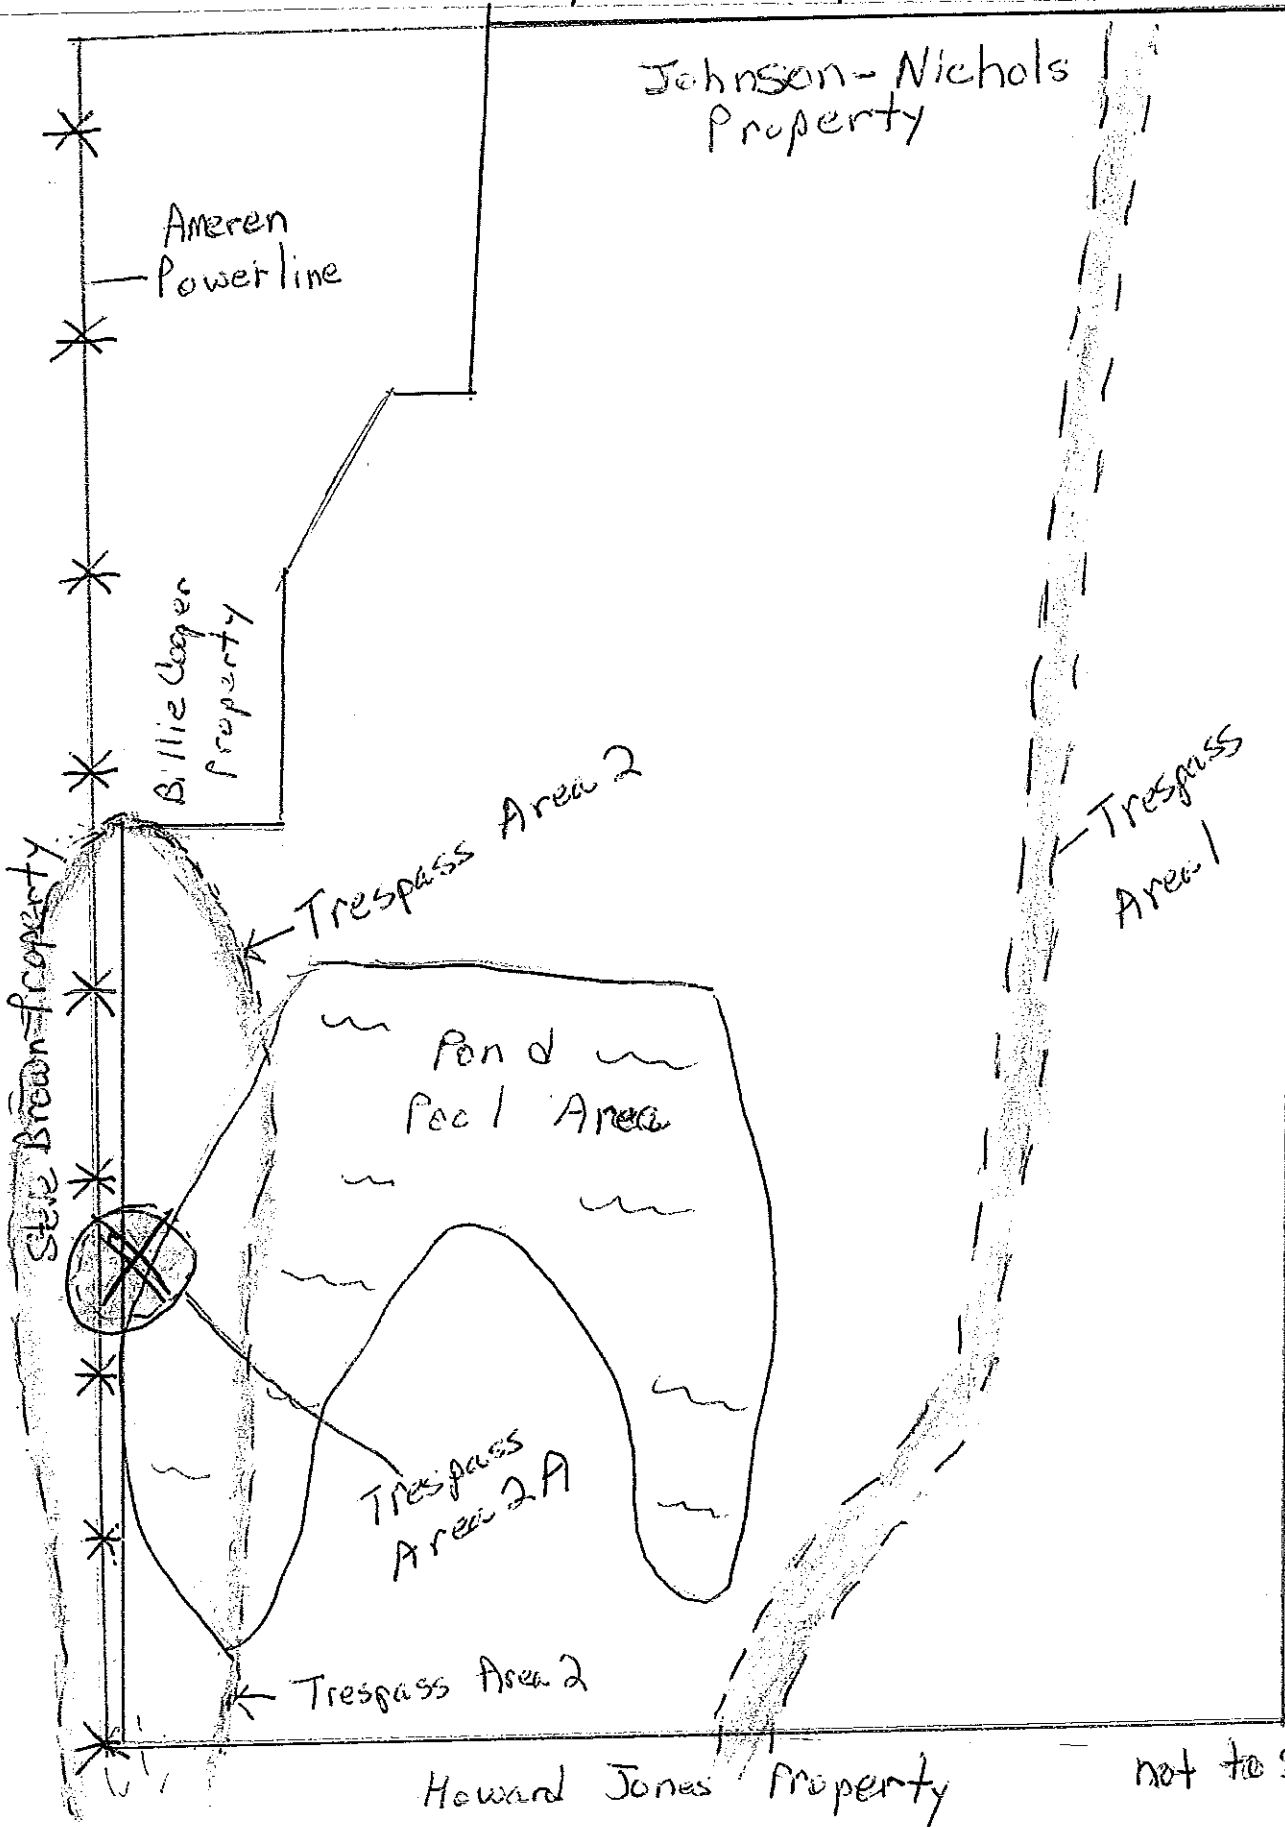 Johnson-Nichols
Property
Ameren
Powerline
Billie Cooper
Property
Trespass Area 2
Trespass
Area 1
Steve Brown Property
Pond
Pool Area
Trespass
Area 2A
Trespass Area 2
Howard Jones Property
not to